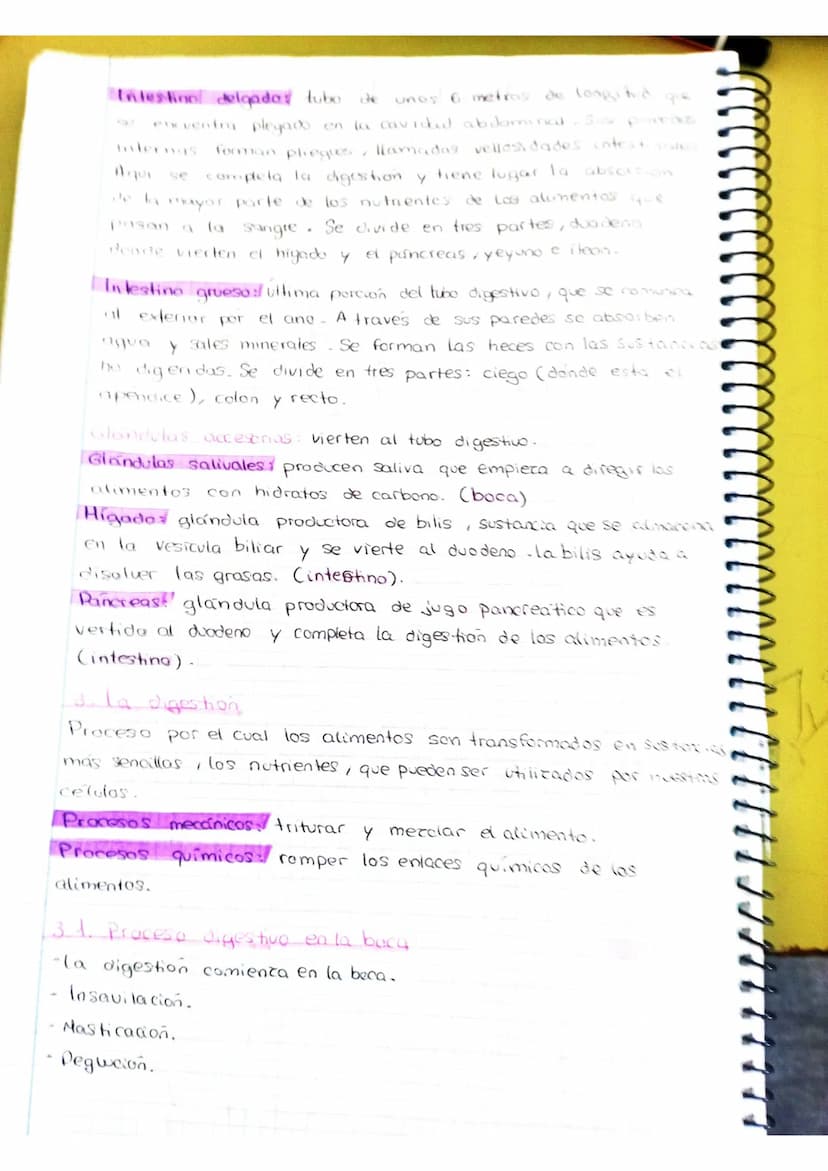 Intestino delgado: tubo de unos 6 metros de longitud que
se encuentra plegado en la cavidad abdominal. Sus paredes
internas forman pliegues, llamadas vellosidades intestinales
Aquí se completa la digestión y tiene lugar la absorción
de la mayor parte de los nutrientes de los alimentos que
pasan a la sangre. Se divide en tres partes, duodeno
donde vierten el hígado y el páncreas, yeyuno e íleon.
Intestino grueso: última porción del tubo digestivo, que se comunica
al exterior por el ano. A través de sus paredes se absorben
agua y sales minerales. Se forman las heces con las sustancias
no digeridas. Se divide en tres partes: ciego (donde esta el
apéndice), colon y recto.
Glándulas accesorias: vierten al tubo digestivo.
Glándulas salivales: producen saliva que empieza a diregir los
alimentos con hidratos de carbono. (boca)
Hígado: glándula productora de bilis, sustancia que se almacena
en la vesícula biliar y se vierte al duodeno. la bilis ayuda a
disolver las grasas. (intestino).
Páncreas: glándula productora de jugo pancreático que es
vertido al duodeno y completa la digestión de los alimentos
(intestino).
3. La digestión
Proceso por el cual los alimentos son transformados en sustancias
más sencillas, los nutrientes, que pueden ser utilizados por nuestras
células.
Procesos mecánicos: triturar y mezclar el alimento.
Procesos químicos: romper los enlaces químicos de los
alimentos.
3.1. Proceso digestivo en la boca
-la digestión comienza en la boca.
- Insavilación.
- Masticación.
- Deglución.